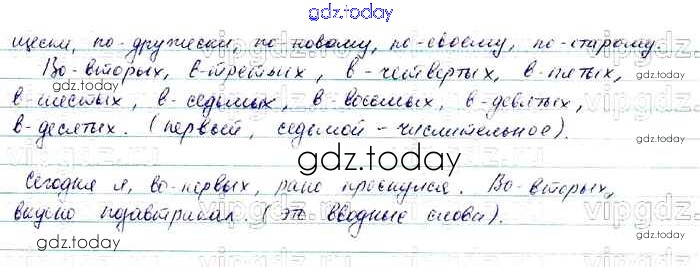 gdz.today
щески, по-дружески, по-новому, по-своему, по-старому.
Во-вторых, в-третьих, в-четвертых, в-пятых,
в-шестых, в-седьмых, в-восьмых, в-девятых,
в-десятых. (первый, седьмой - числительное).
gdz.today
Сегодня я, во-первых, рано проснулся. Во-вторых,
вкусно позавтракал. (это вводные слова).
gdz.today
gdz.today